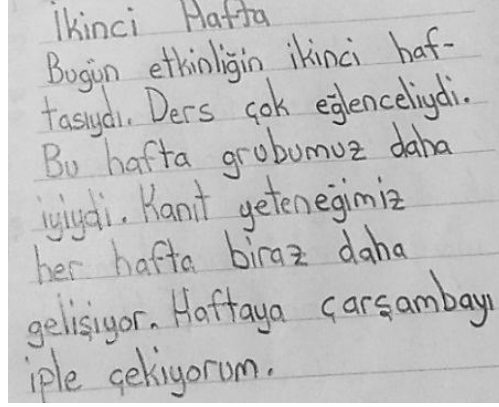 İkinci Hafta
Bugün etkinliğin ikinci haf-
tasıydı. Ders çok eğlenceliydi.
Bu hafta grubumuz daha
iyiydi. Kanıt yeteneğimiz
her hafta biraz daha
gelişiyor. Haftaya çarşambayı
iple çekiyorum.